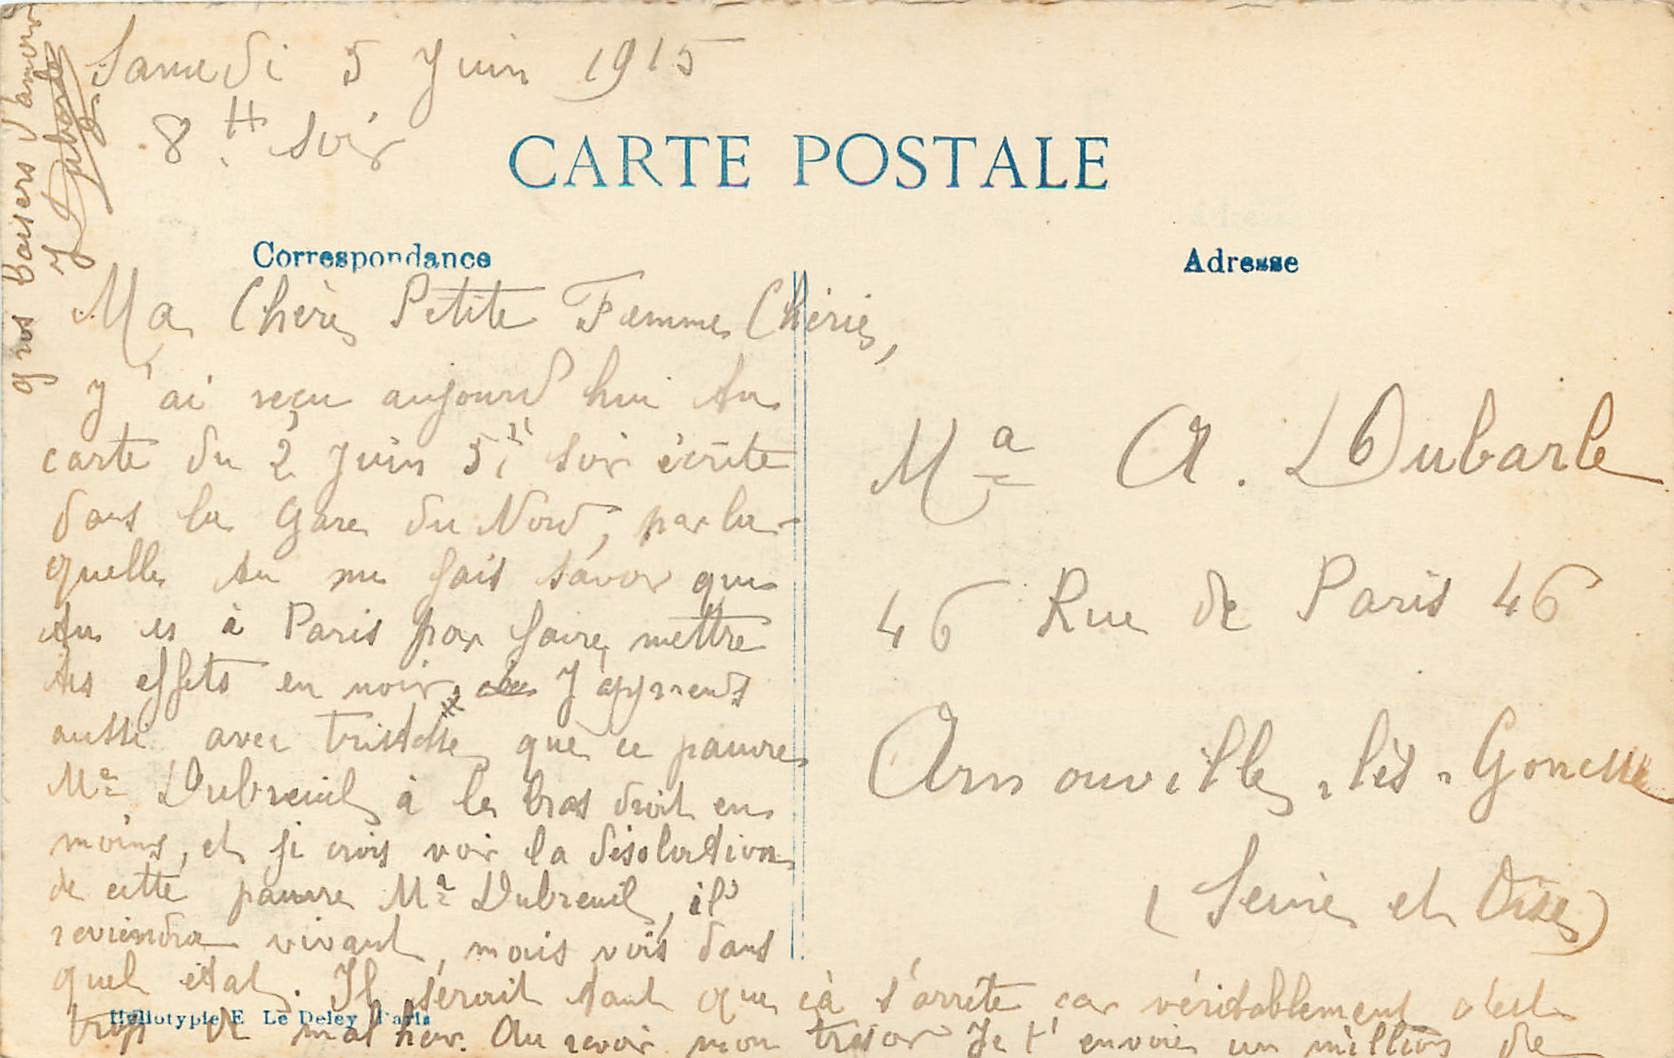 Samedi 5 Juin 1915
8 H soir
CARTE POSTALE
Correspondance
Adresse
Ma Chère Petite Femme Chérie,
J'ai reçu aujourd'hui ta
carte du 2 Juin 5h soir écrite
dans la Gare du Nord, par la-
quelle tu me fais savoir que
tu es à Paris pour faire mettre
tes effets en noir, J'apprends
aussi avec tristesse que ce pauvre
Mr Dubreuil à le bras droit en
moins, et je crois voir la désolation
de cette pauvre Me Dubreuil, il
reviendra vivant, mais vois dans
quel état. Il serait tant que çà s'arrête car véritablement c'est
trop de malheur. Au revoir mon trésor Je t'envoie un million de
gros baisers d'amour
Dubarle
Me A. Dubarle
46 Rue de Paris 46
Arnouville-lès-Gonesse
(Seine et Oise)
Héliotypie E. Le Deley Paris